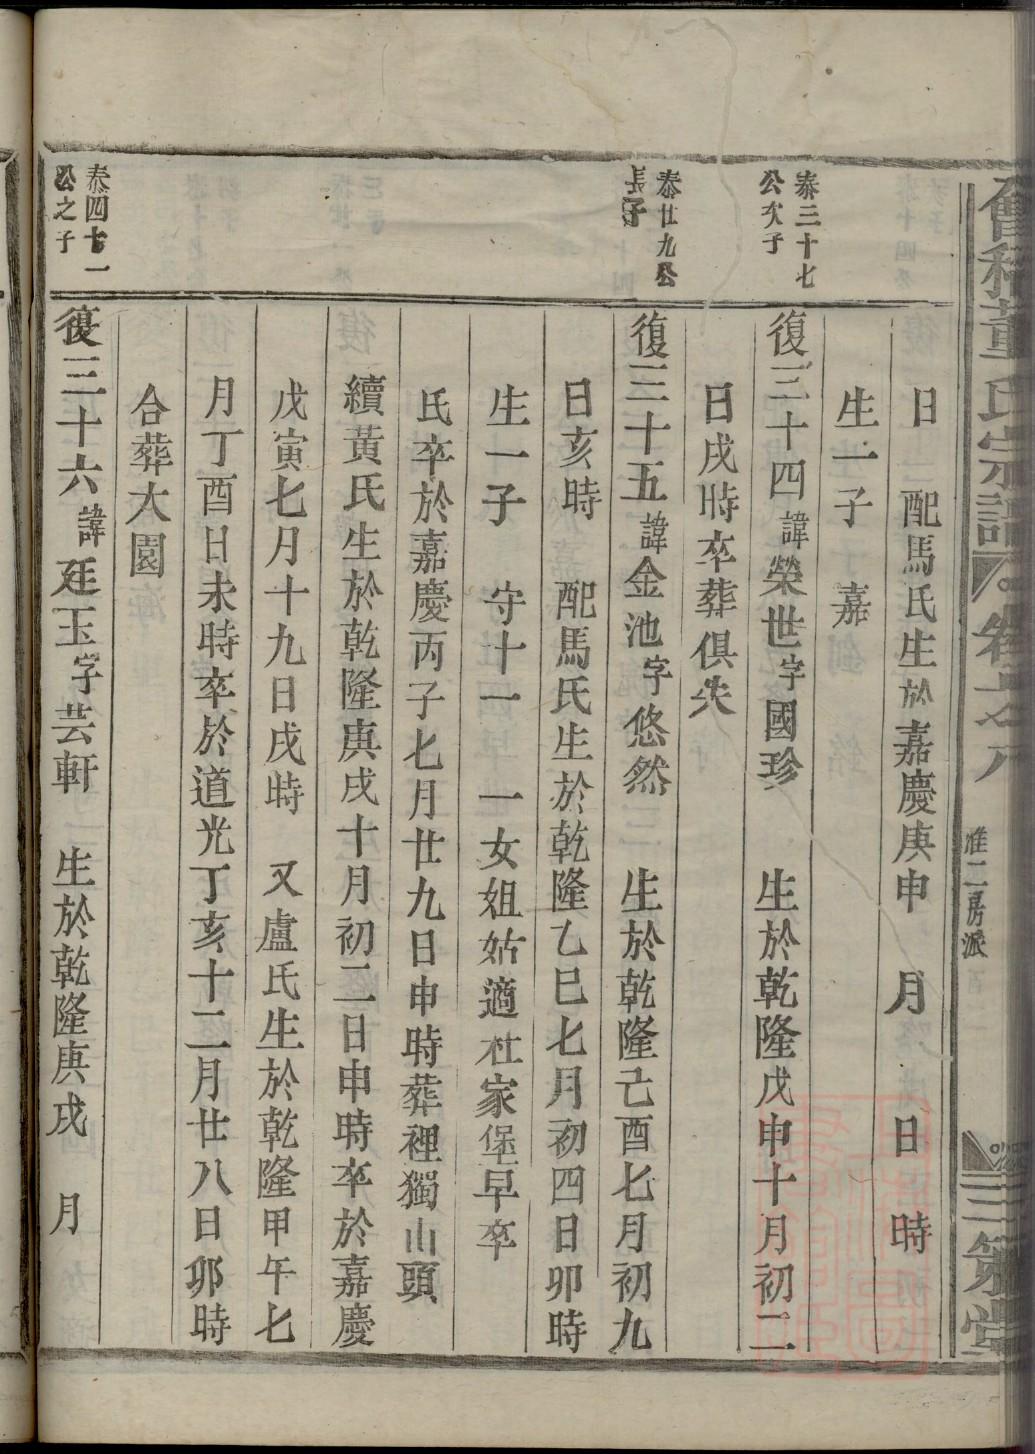 會稽董氏宗譜
卷
雅二房派
三策堂
日 配馬氏生於嘉慶庚申 月 日 時
生一子 嘉
泰三十七
公次子
復三十四諱榮世字國珍 生於乾隆戊申十月初二
日戌時卒葬俱失
泰廿九公
長子
復三十五諱金池字悠然 生於乾隆己酉七月初九
日亥時 配馬氏生於乾隆乙巳七月初四日卯時
生一子 守十一 一女姐姑適杜家堡早卒
氏卒於嘉慶丙子七月廿九日申時葬裡獨山頭
續黃氏生於乾隆庚戌十月初二日申時卒於嘉慶
戊寅七月十九日戌時 又盧氏生於乾隆甲午七
月丁酉日未時卒於道光丁亥十二月廿八日卯時
合葬大園
泰四十一
公之子
復三十六諱廷玉字芸軒 生於乾隆庚戌 月